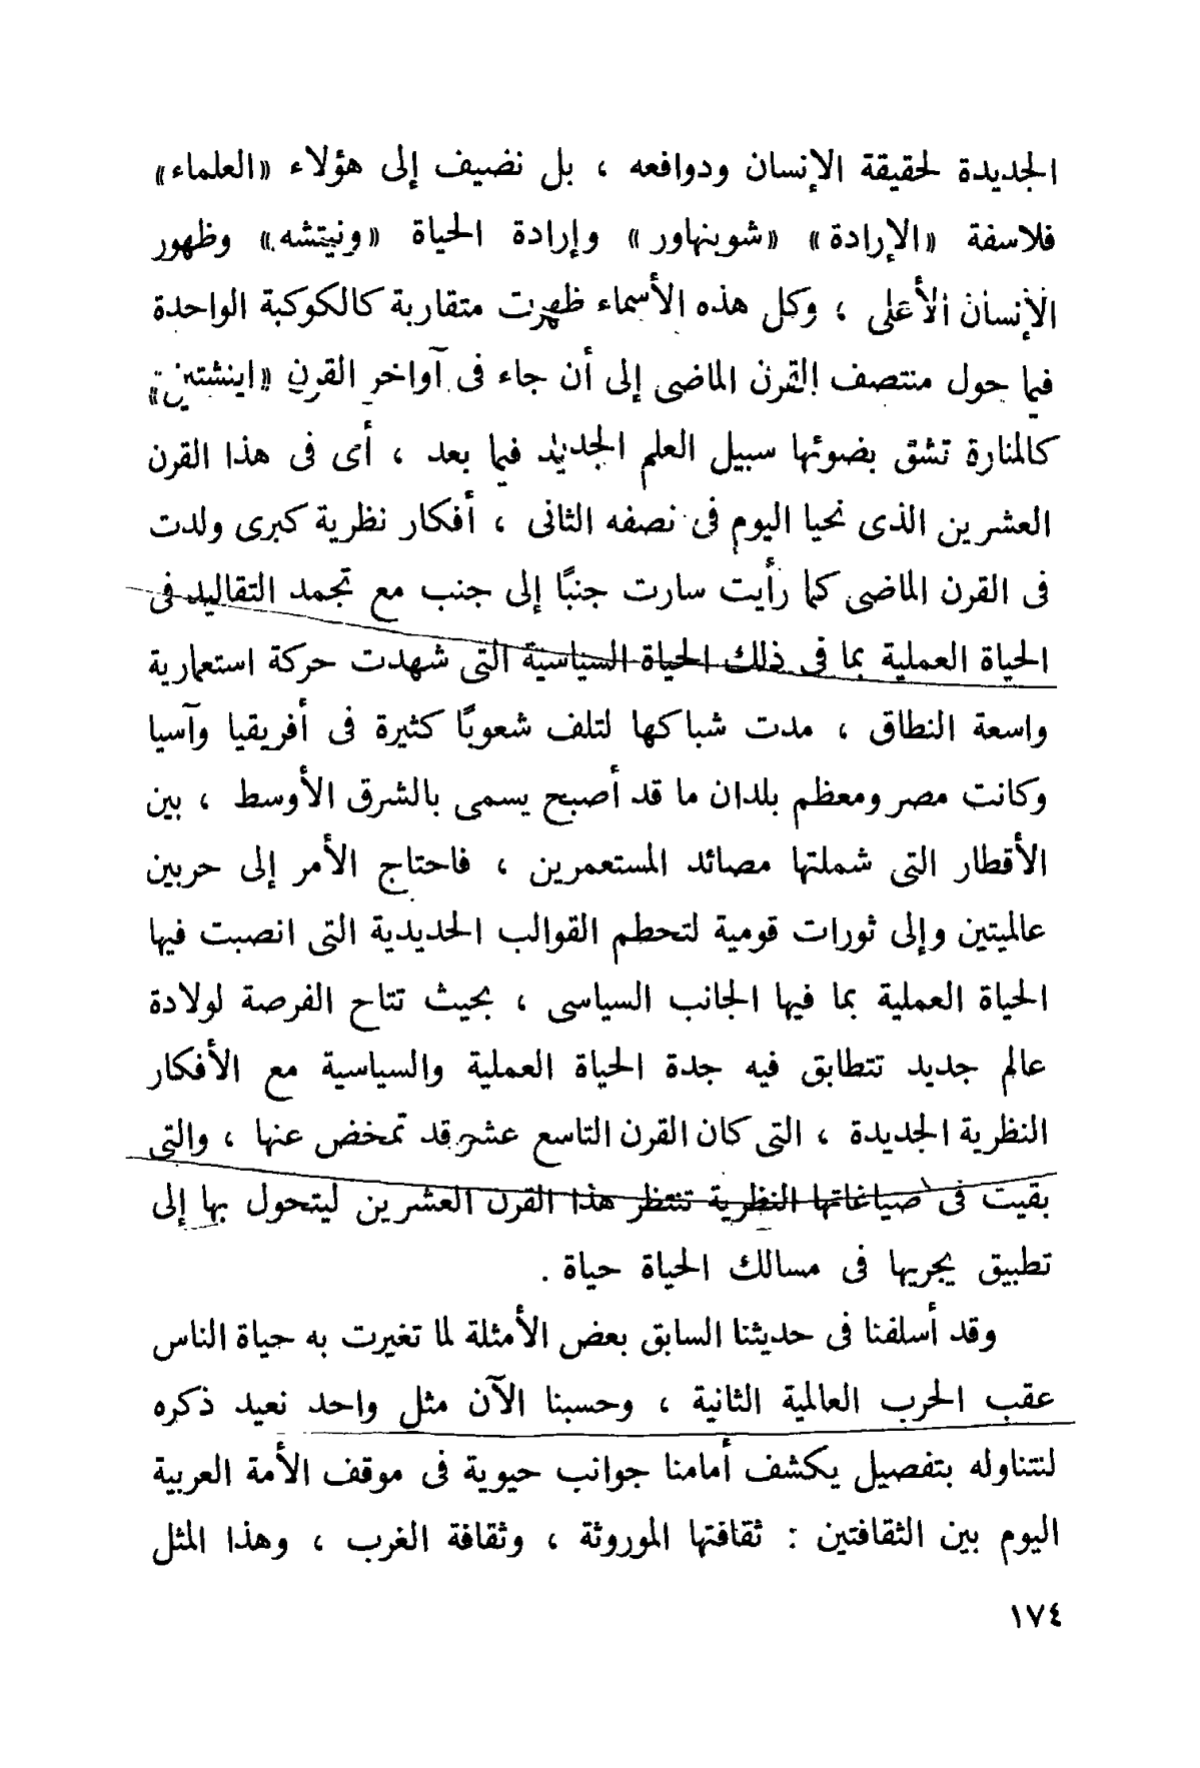 الجديدة لحقيقة الإنسان ودوافعه ، بل نضيف إلى هؤلاء «العلماء»
فلاسفة «الإرادة» «شوبنهاور» وإرادة الحياة «ونيتشه» وظهور
الإنسان الأعلى ، وكل هذه الأسماء ظهرت متقاربة كالكوكبة الواحدة
فيما حول منتصف القرن الماضى إلى أن جاء فى آواخر القرن «اينشتين»
كالمنارة تشق بضوئها سبيل العلم الجديد فيما بعد ، أى فى هذا القرن
العشرين الذى نحيا اليوم فى نصفه الثانى ، أفكار نظرية كبرى ولدت
فى القرن الماضى كما رأيت سارت جنبًا إلى جنب مع تجمد التقاليد فى
الحياة العملية بما فى ذلك الحياة السياسية التى شهدت حركة استعمارية
واسعة النطاق ، مدت شباكها لتلف شعوبًا كثيرة فى أفريقيا وآسيا
وكانت مصر ومعظم بلدان ما قد أصبح يسمى بالشرق الأوسط ، بين
الأقطار التى شملتها مصائد المستعمرين ، فاحتاج الأمر إلى حربين
عالميتين وإلى ثورات قومية لتحطم القوالب الحديدية التى انصبت فيها
الحياة العملية بما فيها الجانب السياسى ، بحيث تتاح الفرصة لولادة
عالم جديد تتطابق فيه جدة الحياة العملية والسياسية مع الأفكار
النظرية الجديدة ، التى كان القرن التاسع عشر قد تمخض عنها ، والتى
بقيت فى صياغاتها النظرية تنتظر هذا القرن العشرين ليتحول بها إلى
تطبيق يجريها فى مسالك الحياة حياة .
وقد أسلفنا فى حديثنا السابق بعض الأمثلة لما تغيرت به حياة الناس
عقب الحرب العالمية الثانية ، وحسبنا الآن مثل واحد نعيد ذكره
لنتناوله بتفصيل يكشف أمامنا جوانب حيوية فى موقف الأمة العربية
اليوم بين الثقافتين : ثقافتها الموروثة ، وثقافة الغرب ، وهذا المثل
١٧٤